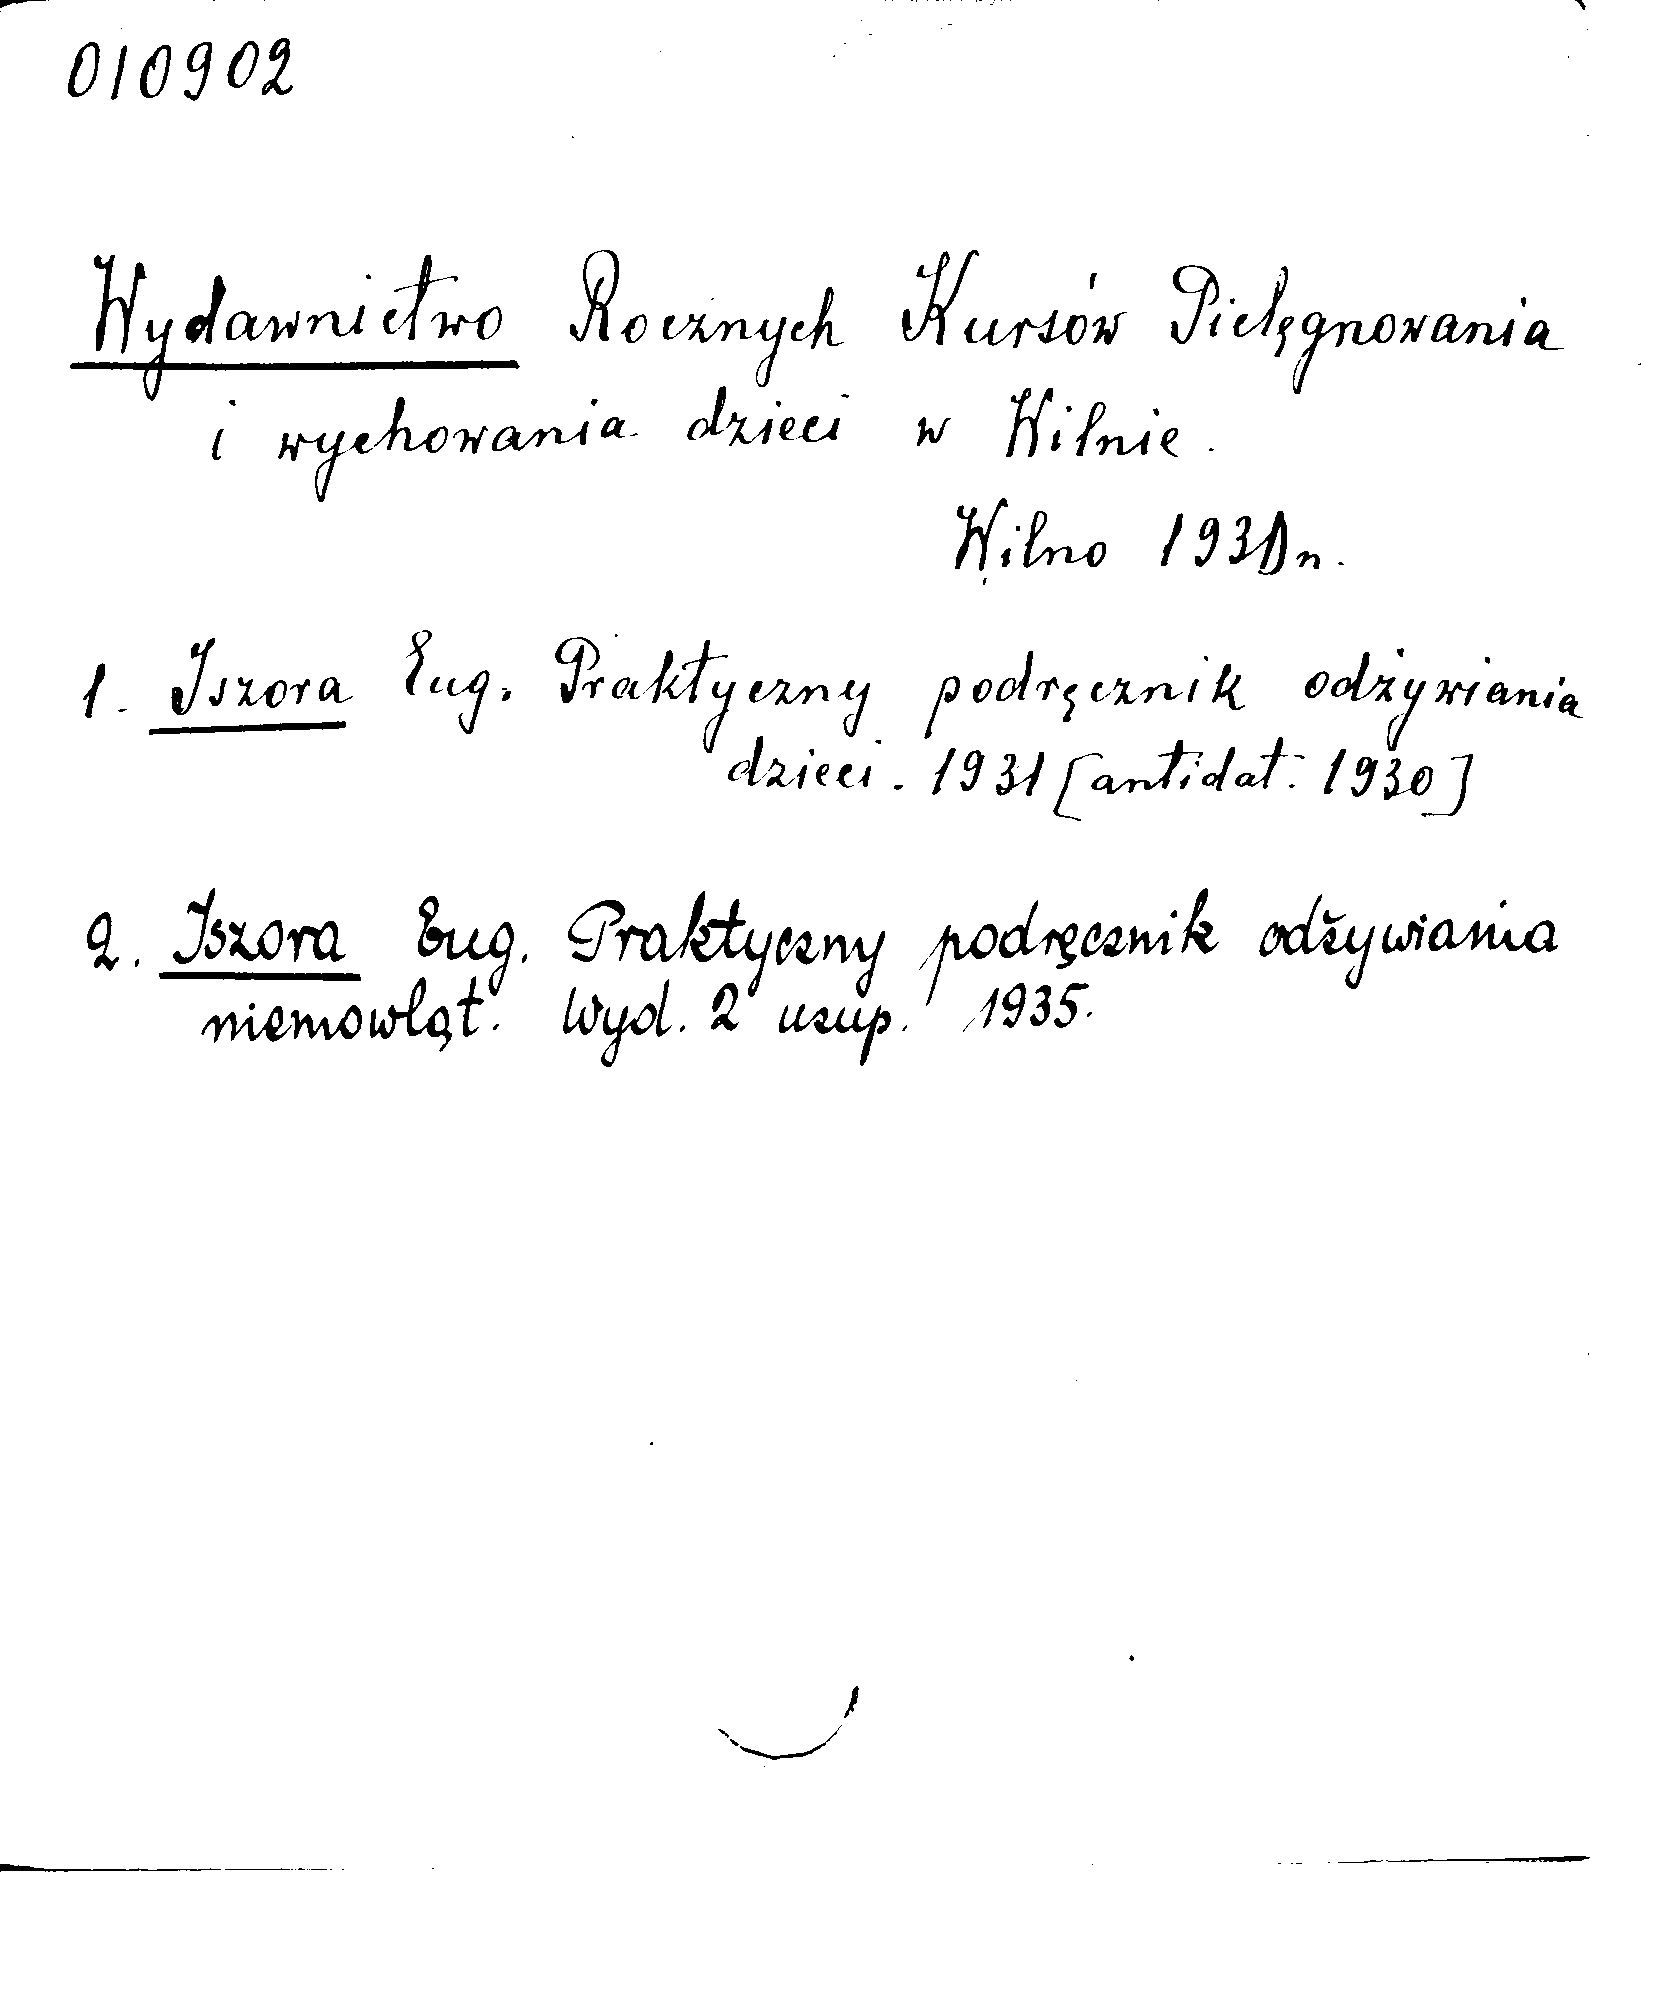 010902
Wydawnictwo Rocznych Kursów Pielęgnowania
i wychowania dzieci w Wilnie.
Wilno n.
1. Iszora Eug. Praktyczny podręcznik odżywiania
dzieci. 1931 [antidat. 1930]
2. Iszora Eug. Praktyczny podręcznik odżywiania
niemowląt. Wyd. 2 uzup. 1935.